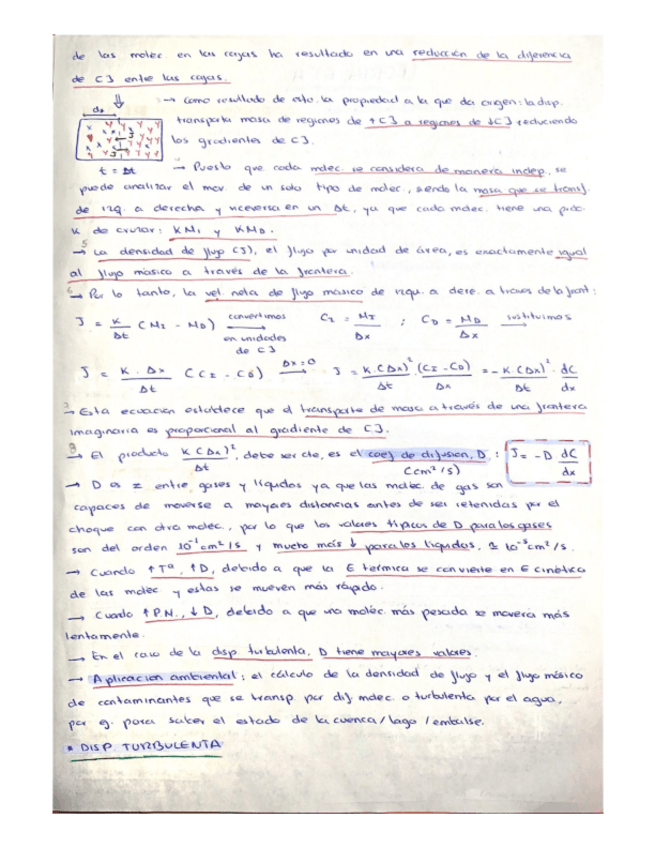 de las molec en las cajas ha resultado en una reducción de la diferencia
de [] entre las cajas.
→ como resultado de esto, la propiedad a la que da origen: la disp.
transporta masa de regiones de ↑[] a regiones de ↓[] reduciendo
los gradientes de [].
t = Δt
→ Puesto que cada molec. se considera de manera indep., se
puede analizar el mov. de un solo tipo de molec., siendo la masa que se transf.
de izq. a derecha y viceversa en un Δt, ya que cada molec. tiene una prob.
K de cruzar: KMI y KMD.
5
→ La densidad de flujo (J), el flujo por unidad de área, es exactamente igual
al flujo másico a través de la frontera.
6
→ Por lo tanto, la vel. neta de flujo másico de izqu. a dere. a traves de la front:
J = K/Δt (MI - MD) convertimos en unidades de [] → CI = MI/Δx ; CD = MD/Δx sustituimos →
J = K·Δx/Δt (CI - CD) Δx=0 → J = K(Δx)²/Δt · (CI - CD)/Δx = - K(Δx)²/Δt · dC/dx
→ Esta ecuación establece que el transporte de masa a través de una frontera
imaginaria es proporcional al gradiente de [].
8
→ El producto K(Δx)²/Δt, debe ser cte, es el coef de difusión, D (cm²/s) : J = -D dC/dx
→ D es ≠ entre gases y líquidos ya que las molec. de gas son
capaces de moverse a mayores distancias antes de ser retenidas por el
choque con otra molec., por lo que los valores típicos de D para los gases
son del orden 10⁻¹ cm²/s y mucho más ↓ para los líquidos, ≅ 10⁻⁵ cm²/s.
→ Cuando ↑Tª, ↑D, debido a que la E térmica se convierte en E cinética
de las molec y estas se mueven más rápido.
→ Cuando ↑P.M., ↓D, debido a que una molec. más pesada se moverá más
lentamente.
→ En el caso de la disp turbulenta, D tiene mayores valores.
→ Aplicación ambiental: el cálculo de la densidad de flujo y el flujo másico
de contaminantes que se transp por dif. molec. o turbulenta por el agua,
por ej. para saber el estado de la cuenca/lago/embalse.
* DISP. TURBULENTA